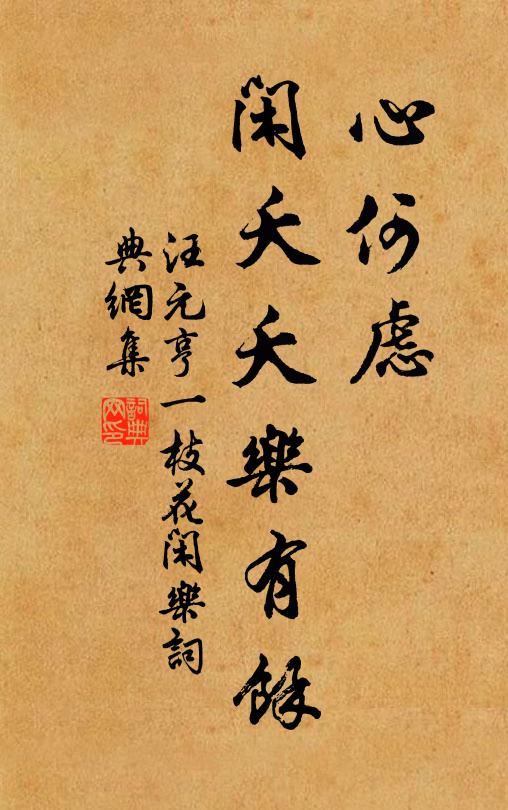 心何慮
閑夭夭樂有餘
汪元亨一枝花閑樂詞
典網集
詞典
網印